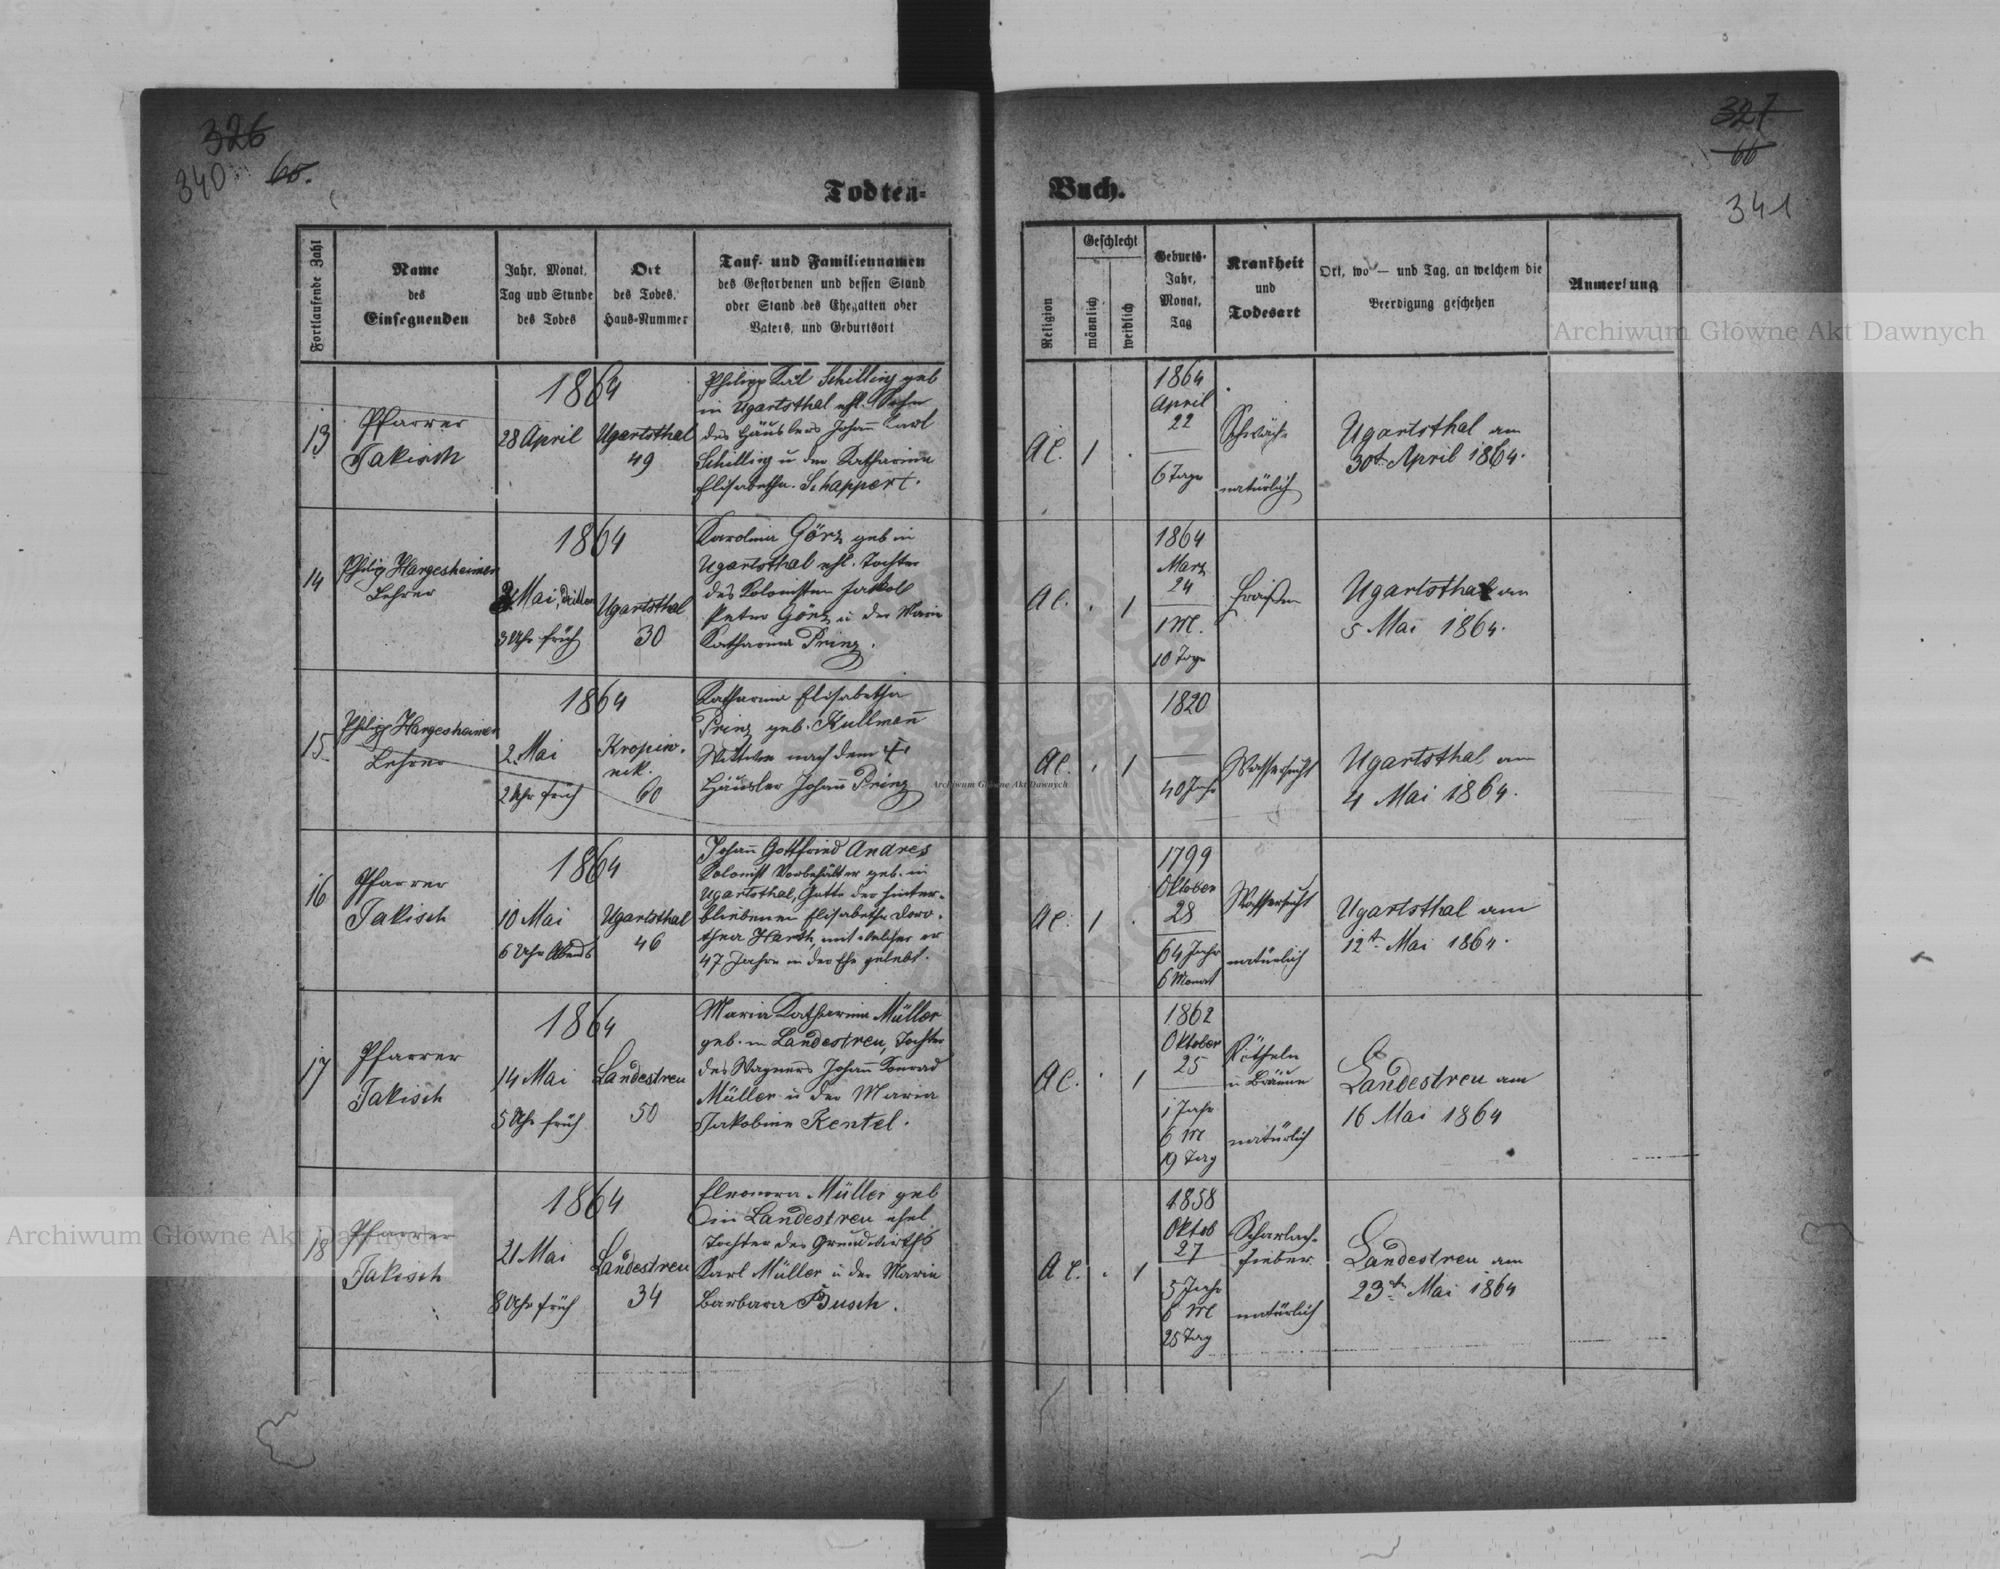 326
340 65.
Todten-
Fortlaufende Zahl
Name
des
Einsegnenden
Jahr, Monat,
Tag und Stunde
des Todes
Ort
des Todes,
Haus-Nummer
Tauf- und Familiennamen
des Gestorbenen und dessen Stand
oder Stand des Ehegatten oder
Vaters, und Geburtsort
13
Pfarrer
Jakisch
1864
28 April
Ugartsthal
49
Philipp Karl Schilling geb
in Ugartsthal ehl. Sohn
des Häuslers Johan̄ Karl
Schilling u der Katharina
Elisabetha Schappert.
14
Philip Hargesheimer
Lehrer
1864
3 Mai, dritten
3 Uhr früh
Ugartsthal
30
Karolina Görz geb in
Ugartsthal ehl. Tochter
des Kolonisten Jakob
Peter Görz u der Maria
Katharina Prinz.
15
Philipp Hargesheimer
Lehrer
1864
2. Mai
2 Uhr früh
Kropiw-
nik.
60
Katharina Elisabetha
Prinz geb. Kullman̄
Wittwe nach dem
Häusler Johan̄ Prinz
16
Pfarrer
Jakisch
1864
10 Mai
6 Uhr Abends
Ugartsthal
46
Johan̄ Gottfried Andres
Kolonist Vorbehälter geb. in
Ugartsthal, Gatte der hinter-
bliebenen Elisabetha Doro-
thea Harth, mit welcher er
47 Jahre in der Ehe gelebt.
17
Pfarrer
Jakisch
1864
14 Mai
5 Uhr früh
Landestreu
50
Maria Katharina Müller
geb. in Landestreu, Tochter
des Wagners Johan̄ Konrad
Müller u der Maria
Jakobine Rentel.
18
Pfarrer
Jakisch
1864
21 Mai
8 Uhr früh
Landestreu
34
Eleonora Müller geb
in Landestreu ehel
Tochter des Grundwirths
Karl Müller u der Maria
Barbara Busch.
327
66
341
Buch.
Religion
Geschlecht
männlich
weiblich
Geburts-
Jahr,
Monat,
Tag
Krankheit
und
Todesart
Ort, wo — und Tag, an welchem die
Beerdigung geschehen
Anmerkung
AC. 1 .
1864
April
22
6 Tage
Schwäche
natürlich
Ugartsthal am
30t April 1864.
AC. . 1
1864
März
24
1 M.
10 Tage
Fraißen
Ugartsthal am
5 Mai 1864.
AC. . 1
1820
40 Jahr
Wassersucht
Ugartsthal am
4 Mai 1864.
AC. 1 .
1799
Oktober
28
64 Jahr
6 Monat
Wassersucht
natürlich
Ugartsthal am
12t Mai 1864.
AC. . 1
1862
Oktober
25
1 Jahr
6 M
19 Tag
Rötheln
u Bräune
natürlich
Landestreu am
16 Mai 1864
AC. . 1
1858
Oktob
27
5 Jahr
6 M
25 Tag
Scharlach-
fieber
natürlich
Landestreu am
23t Mai 1864
Archiwum Główne Akt Dawnych
Archiwum Główne Akt Dawnych
Archiwum Główne Akt Dawnych